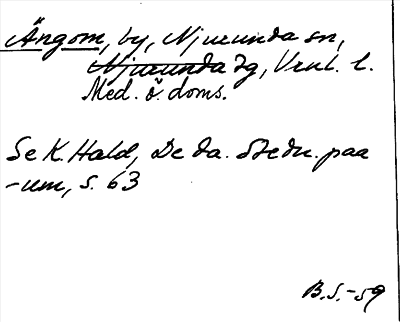 Ängom, by, Njurunda sn,
Njurunda tg, Vnl. l.
Med. ö. doms.
Se K. Hald, De da. Stedn. paa
-um, s. 63
B.S.-59